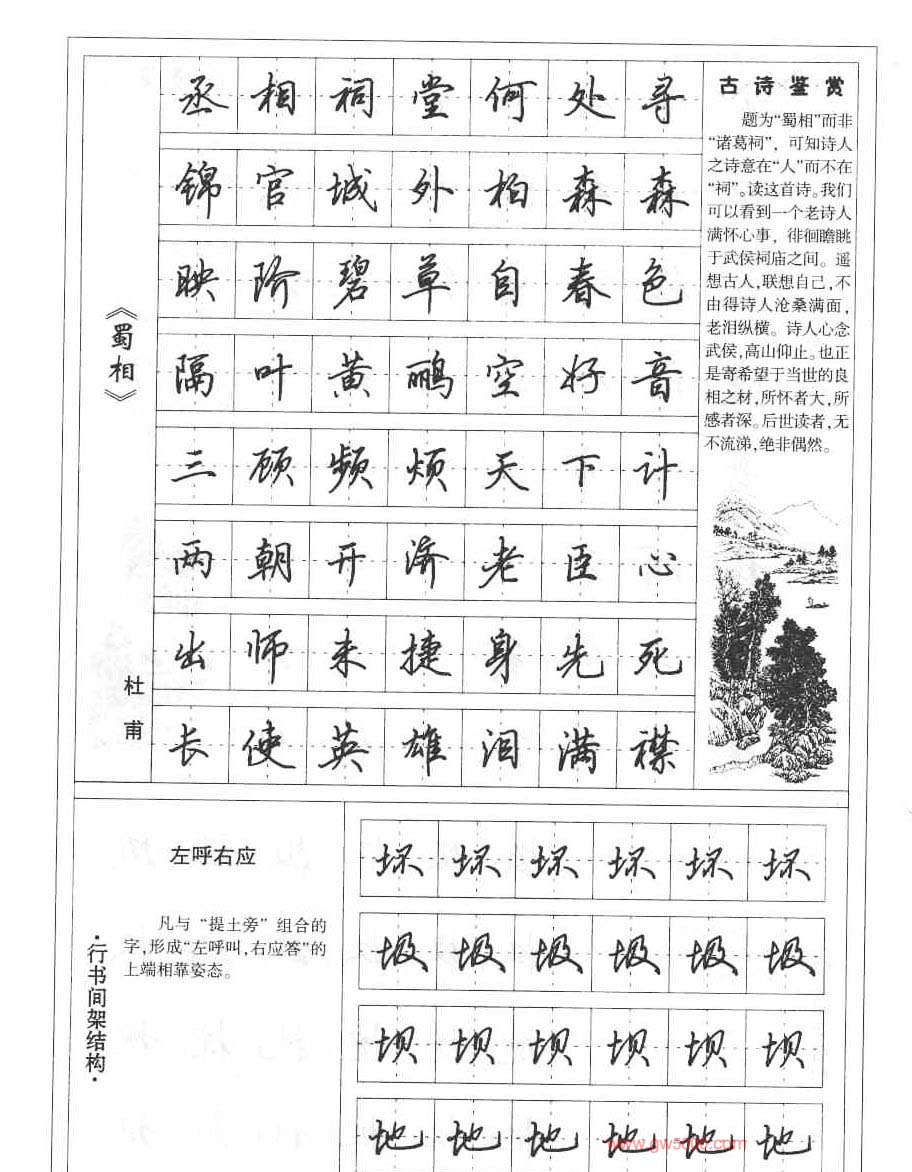 《蜀相》
杜甫
丞相祠堂何处寻
锦官城外柏森森
映阶碧草自春色
隔叶黄鹂空好音
三顾频烦天下计
两朝开济老臣心
出师未捷身先死
长使英雄泪满襟
古诗鉴赏
题为“蜀相”而非
“诸葛祠”，可知诗人
之诗意在“人”而不在
“祠”。读这首诗。我们
可以看到一个老诗人
满怀心事，徘徊瞻眺
于武侯祠庙之间。遥
想古人,联想自己,不
由得诗人沧桑满面,
老泪纵横。诗人心念
武侯,高山仰止。也正
是寄希望于当世的良
相之材,所怀者大,所
感者深。后世读者,无
不流涕,绝非偶然。
·行书间架结构·
左呼右应
凡与“提土旁”组合的
字,形成“左呼叫,右应答”的
上端相靠姿态。
坏坏坏坏坏坏
圾圾圾圾圾圾
坝坝坝坝坝坝
地地地地地地